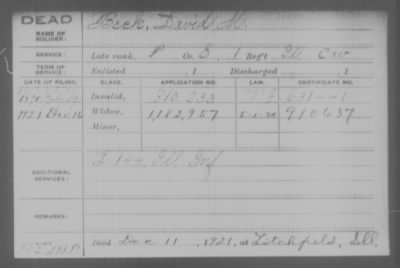 DEAD
NAME OF SOLDIER:
Beck, David M.
SERVICE:
Late rank, P Co. E, 1 Reg't Ill Cav
TERM OF SERVICE:
Enlisted , 1 Discharged , 1
DATE OF FILING. CLASS. APPLICATION NO. LAW. CERTIFICATE NO.
Invalid,
1921 Dec 16 Widow, 1,182,957 910637
Minor,
144 Ill Inf
ADDITIONAL SERVICES:
REMARKS:
Died Dec 11, 1921, at Litchfield, Ill.